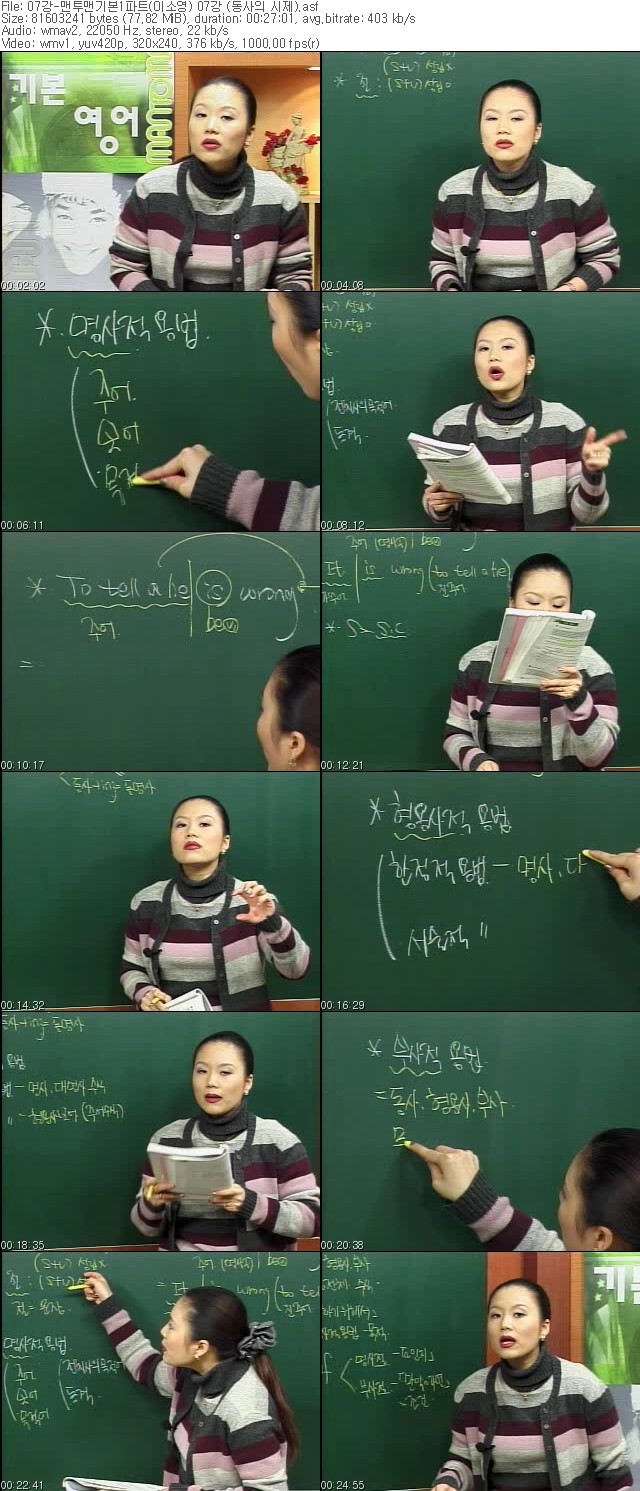 File: 07강-맨투맨기본1파트(이소영) 07강 (동사의 시제).asf
Size: 81603241 bytes (77,82 MiB), duration: 00:27:01, avg,bitrate: 403 kb/s
Audio: wmav2, 22050 Hz, stereo, 22 kb/s
Video: wmv1, yuv420p, 320x240, 376 kb/s, 1000,00 fps(r)
기본
영어
MANTOM
00:02:02
(S+V) 성립×
* 절 : (S+V) 성립o
00:04:08
* 명사적 용법.
주어.
보어
목적
00:06:11
법.
전치사의목적어.
동격.
00:08:12
* To tell a lie is wrong
주어. be동
=
00:10:17
주어 (명사구) be동
It is wrong (to tell a lie)
진주어
* S = S.C
00:12:21
동사+ing = 동명사
00:14:32
* 형용사적 용법
한정적용법 - 명사, 다
서술적 "
00:16:29
동사+ing = 동명사
용법
법 - 명사, 대명사 수식
" - 형용사보어 (주어수식)
00:18:35
* 부사적 용법.
= 동사, 형용사, 부사.
00:20:38
(S+V) 성립×
절 : (S+V) 성
명사적 용법
주어
보어
목적어
전치사의목적어
동격.
주어 (명사구) be동
= It is wrong (to tell
진주어
00:22:41
형용사, 부사
수식.
f
명사절 -
부사절 -
기본
00:24:55